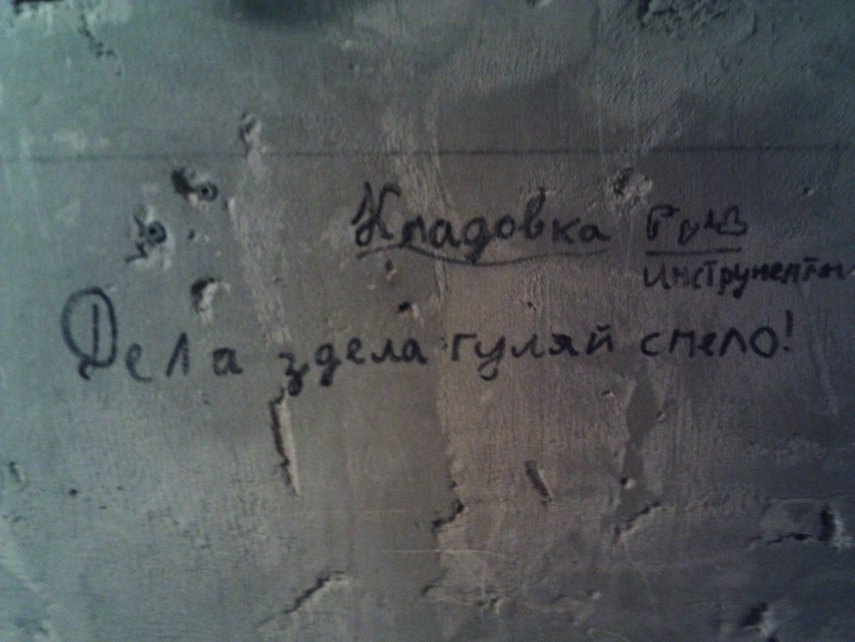 Кладовка
инструментов
Дела здела гуляй смело!